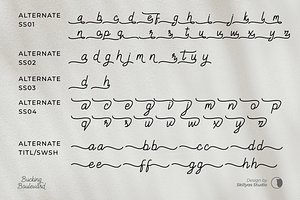 ALTERNATE
SS01
a b c d ef g h i j k l m
n o p q r s t u v w x y z
ALTERNATE
SS02
a d g h j m n r s t u y
ALTERNATE
SS03
d h
ALTERNATE
SS04
a c e g v j m n o p
q r s u w x y z
ALTERNATE
TITL/SWSH
aa bb cc dd
ee ff gg hh
Bucking
Boulevard
Design by
Skillyas Studio